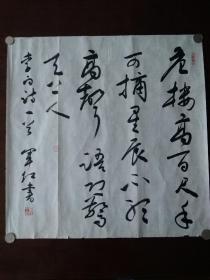 危楼高百尺手
可摘星辰不敢
高声语恐惊
天上人
李白诗一首 军红书